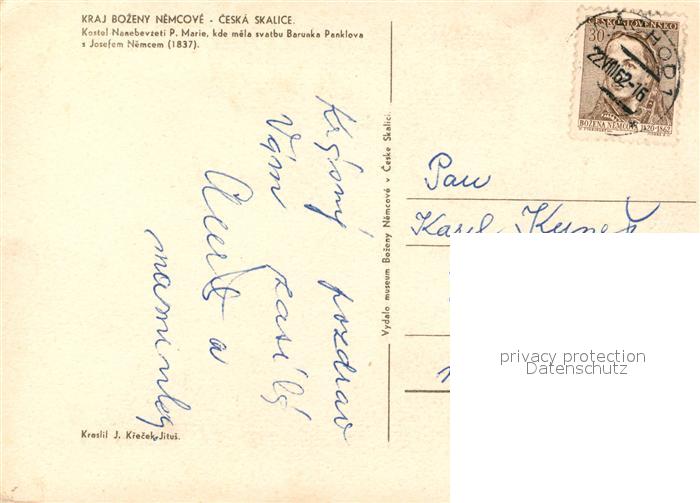 KRAJ BOŽENY NĚMCOVÉ - ČESKÁ SKALICE.
Kostel Nanebevzetí P. Marie, kde měla svatbu Barunka Panklova
s Josefem Němcem (1837).
Krásný pozdrav
Vám zasílá
a
maminka
Kreslil J. Křeček-Jituš.
Vydalo museum Boženy Němcové v České Skalici.
ČESKOSLOVENSKO
30
BOŽENA NĚMCOVÁ 1820-1862
HOD 1
22.VIII.62-16
Pan
Karel
privacy protection
Datenschutz